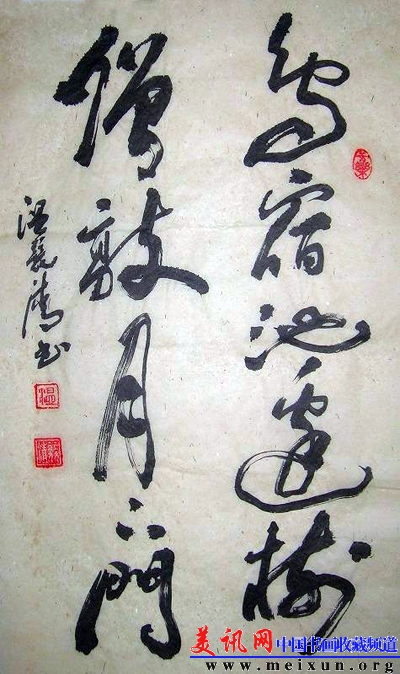 鳥宿池邊樹
僧敲月下門
温義濤书
美讯网 中国书画收藏频道
www.meixun.org